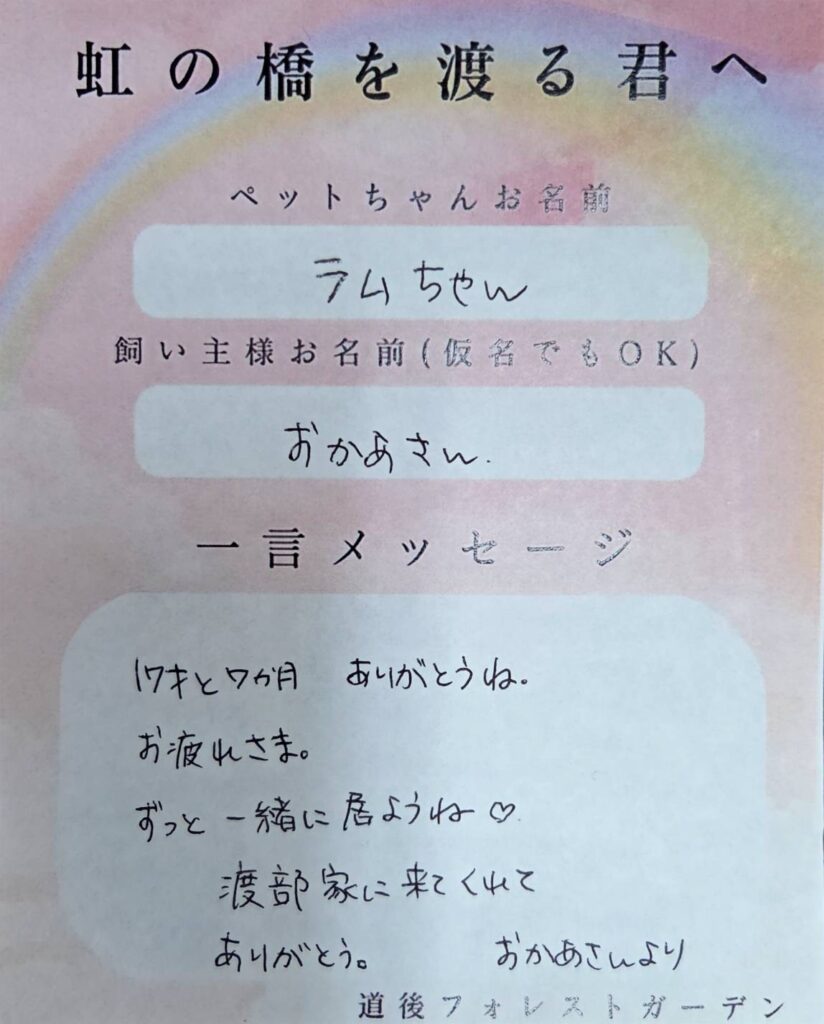 虹の橋を渡る君へ
ペットちゃんお名前
ラムちゃん
飼い主様お名前(仮名でもOK)
おかあさん.
一言メッセージ
17才と7か月 ありがとうね。
お疲れさま。
ずっと一緒に居ようね♡
渡部家に来てくれて
ありがとう。 おかあさんより
道後フォレストガーデン